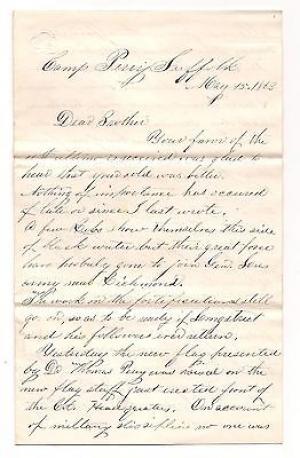 Camp Perry Suffolk
May 13th 1863
Dear Brother
Your favor of the
ultimo is received was glad to
hear that your cold was better.
Nothing of importance has occured
of late or since I last wrote.
A few Rebs show themselves this side
of black water but their great force
have probaly gone to join Gen. Lees
army near Richmond.
The work on the fortifications still
go on, so as to be ready if Longstreet
and his followers ever return.
Yesterday the new flag presented
by Dr Thomas Perry was raised on the
new flag staff just erected front of
the Head quarters. On account
of military discipline no one was